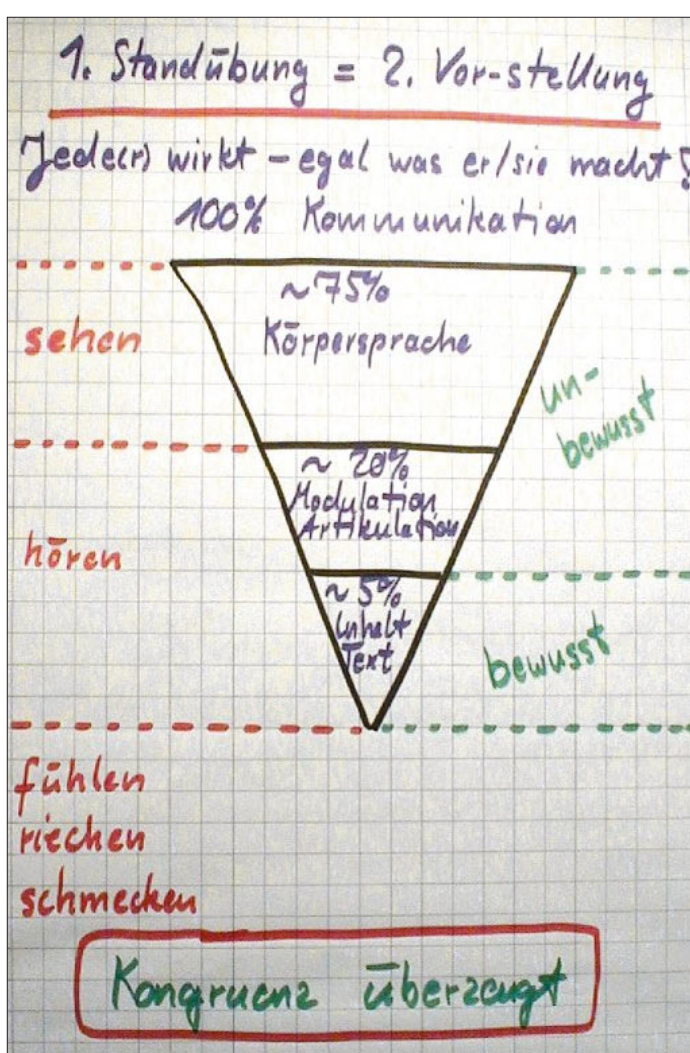 1. Standübung = 2. Vor-stellung
Jede(r) wirkt - egal was er/sie macht!
100% Kommunikation
~75%
Körpersprache
sehen
un-
bewusst
~ 20%
Modulation
Artikulation
hören
~ 5%
Inhalt
Text
bewusst
fühlen
riechen
schmecken
Kongruenz überzeugt